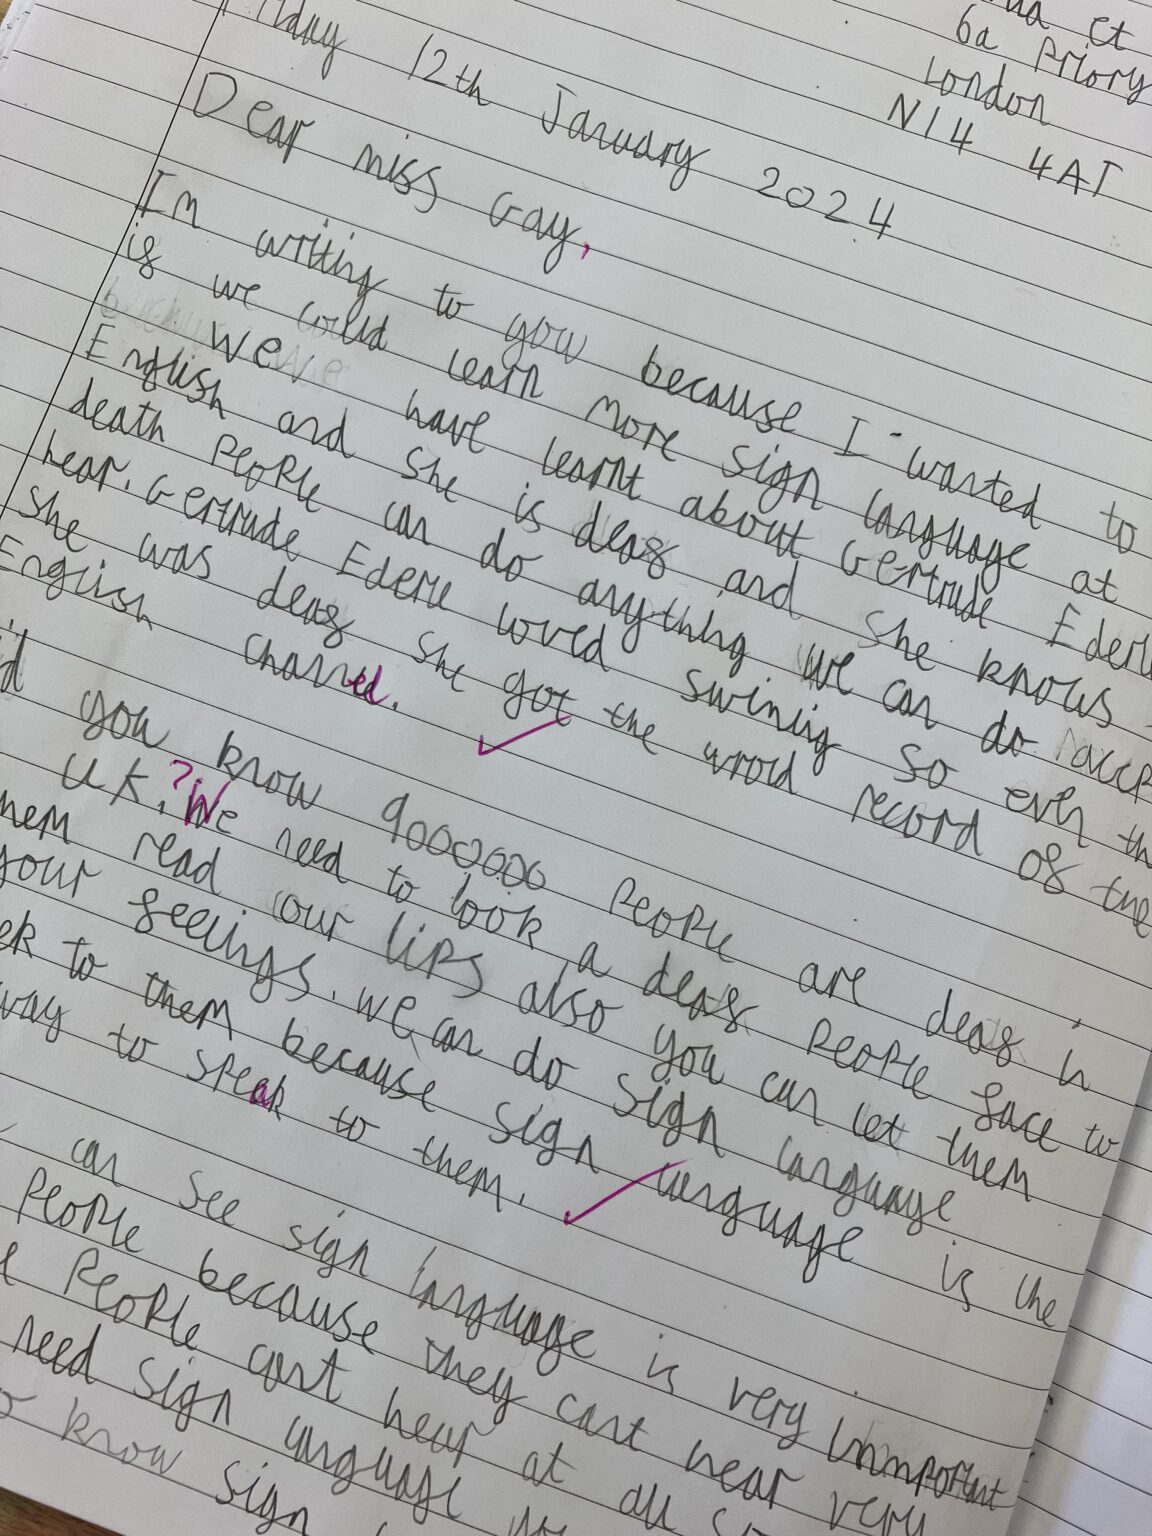 ct
6a Priory
London
N14 4AT
12th January 2024
Dear miss Gay,
Im writing to you because I wanted to
is we could learn more sign language at
We have learnt about Gertrude Ederle
English and she is deas and she knows
death people can do anything we can do
hear. Gertrude Ederle loved swiming so even
she was deas she got the wrold record os the
English channel.
you know 9000000 people are deas in
UK.? We need to look a deas people sace to
read our lips also you can let them
your seelings. we can do sign language
to them because sign language is the
way to speak to them.
can see sign language is very
people because they cant hear very
people cant hear at all
need sign language
know sign